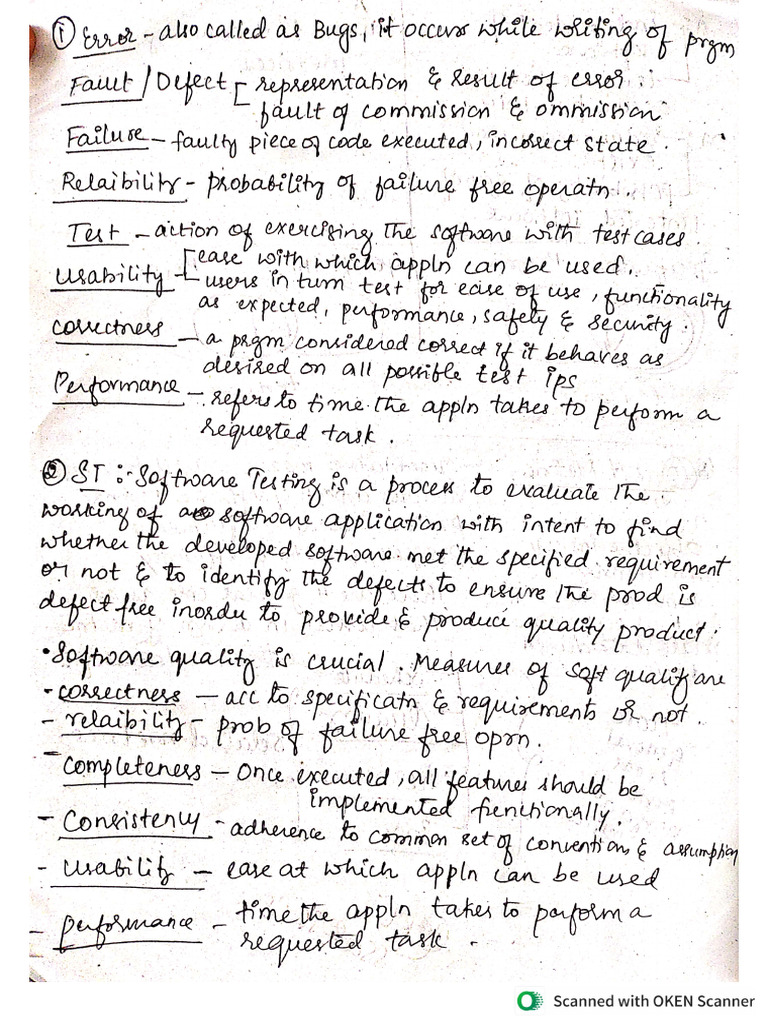 ① Error - also called as Bugs, it occurs while writing of prgm
Fault / Defect [ representation & result of error.
fault of commission & ommission
Failure - faulty piece of code executed, incorrect state.
Relaibility - probability of failure free operatn.
Test - action of exercising the software with test cases.
Usability [ ease with which appln can be used.
- users in turn test for ease of use, functionality
as expected, performance, safety & security.
correctness - a prgm considered correct if it behaves as
desired on all possible test ips
Performance - refers to time the appln takes to perform a
requested task.
② ST :- Software Testing is a process to evaluate the
working of a software application with intent to find
whether the developed software met the specified requirement
or not & to identify the defects to ensure the prod is
defect free inordu to provide & produce quality product.
• Software quality is crucial. Measures of soft quality are
- correctness - acc to specificatn & requirements or not.
- relaibility - prob of failure free oprn.
- Completeness - Once executed, all features should be
implemented functionally.
- Consistency - adherence to common set of conventions & assumption
- Usability - ease at which appln can be used
- performance - time the appln takes to perform a
requested task.
Scanned with OKEN Scanner